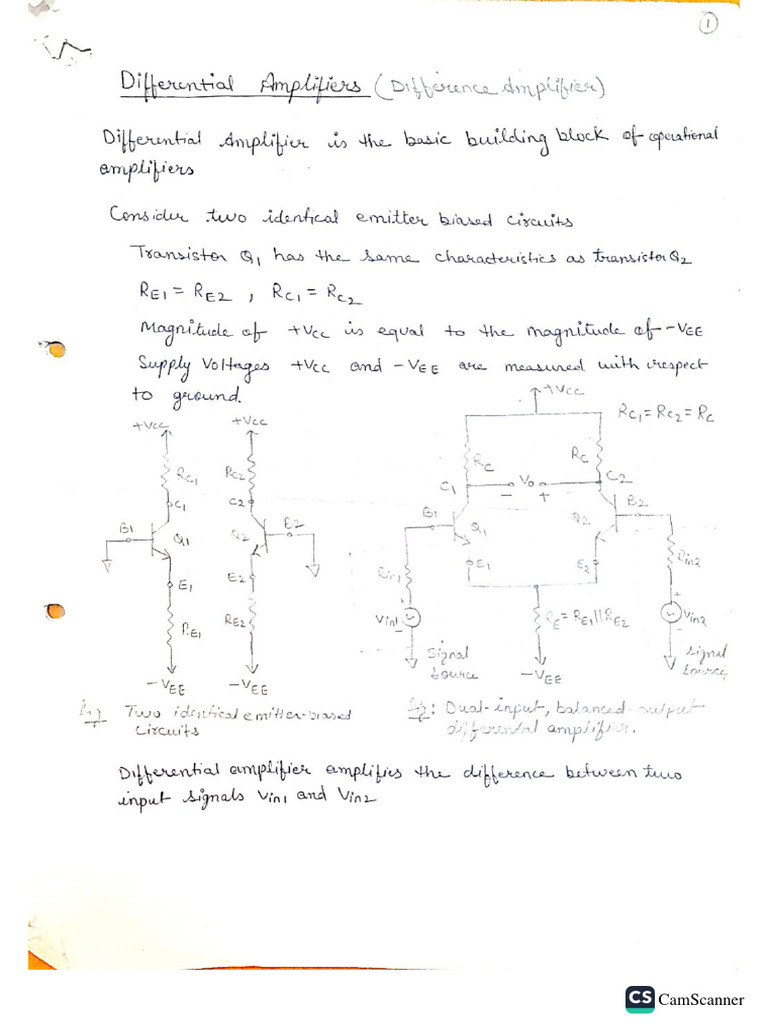 1
Differential Amplifiers (Difference Amplifier)
Differential Amplifier is the basic building block of operational
amplifiers
Consider two identical emitter biased circuits
Transistor Q1 has the same characteristics as transistor Q2
RE1 = RE2 , RC1 = RC2
Magnitude of +VCC is equal to the magnitude of -VEE
Supply Voltages +VCC and -VEE are measured with respect
to ground.
+VCC
+VCC
RC1
RC2
C1
C2
B1
Q1
Q2
B2
E1
E2
RE1
RE2
-VEE
-VEE
Two identical emitter-biased
circuits
+VCC
RC1 = RC2 = RC
RC
RC
C1
Vo
C2
- +
B1
Q1
Q2
B2
E1
E2
Rin1
Rin2
+
Vin1
-
RE = RE1 || RE2
+
Vin2
-
Signal
source
-VEE
Signal
source
Dual-input, balanced-output
differential amplifier.
Differential amplifier amplifies the difference between two
input signals Vin1 and Vin2
CS CamScanner